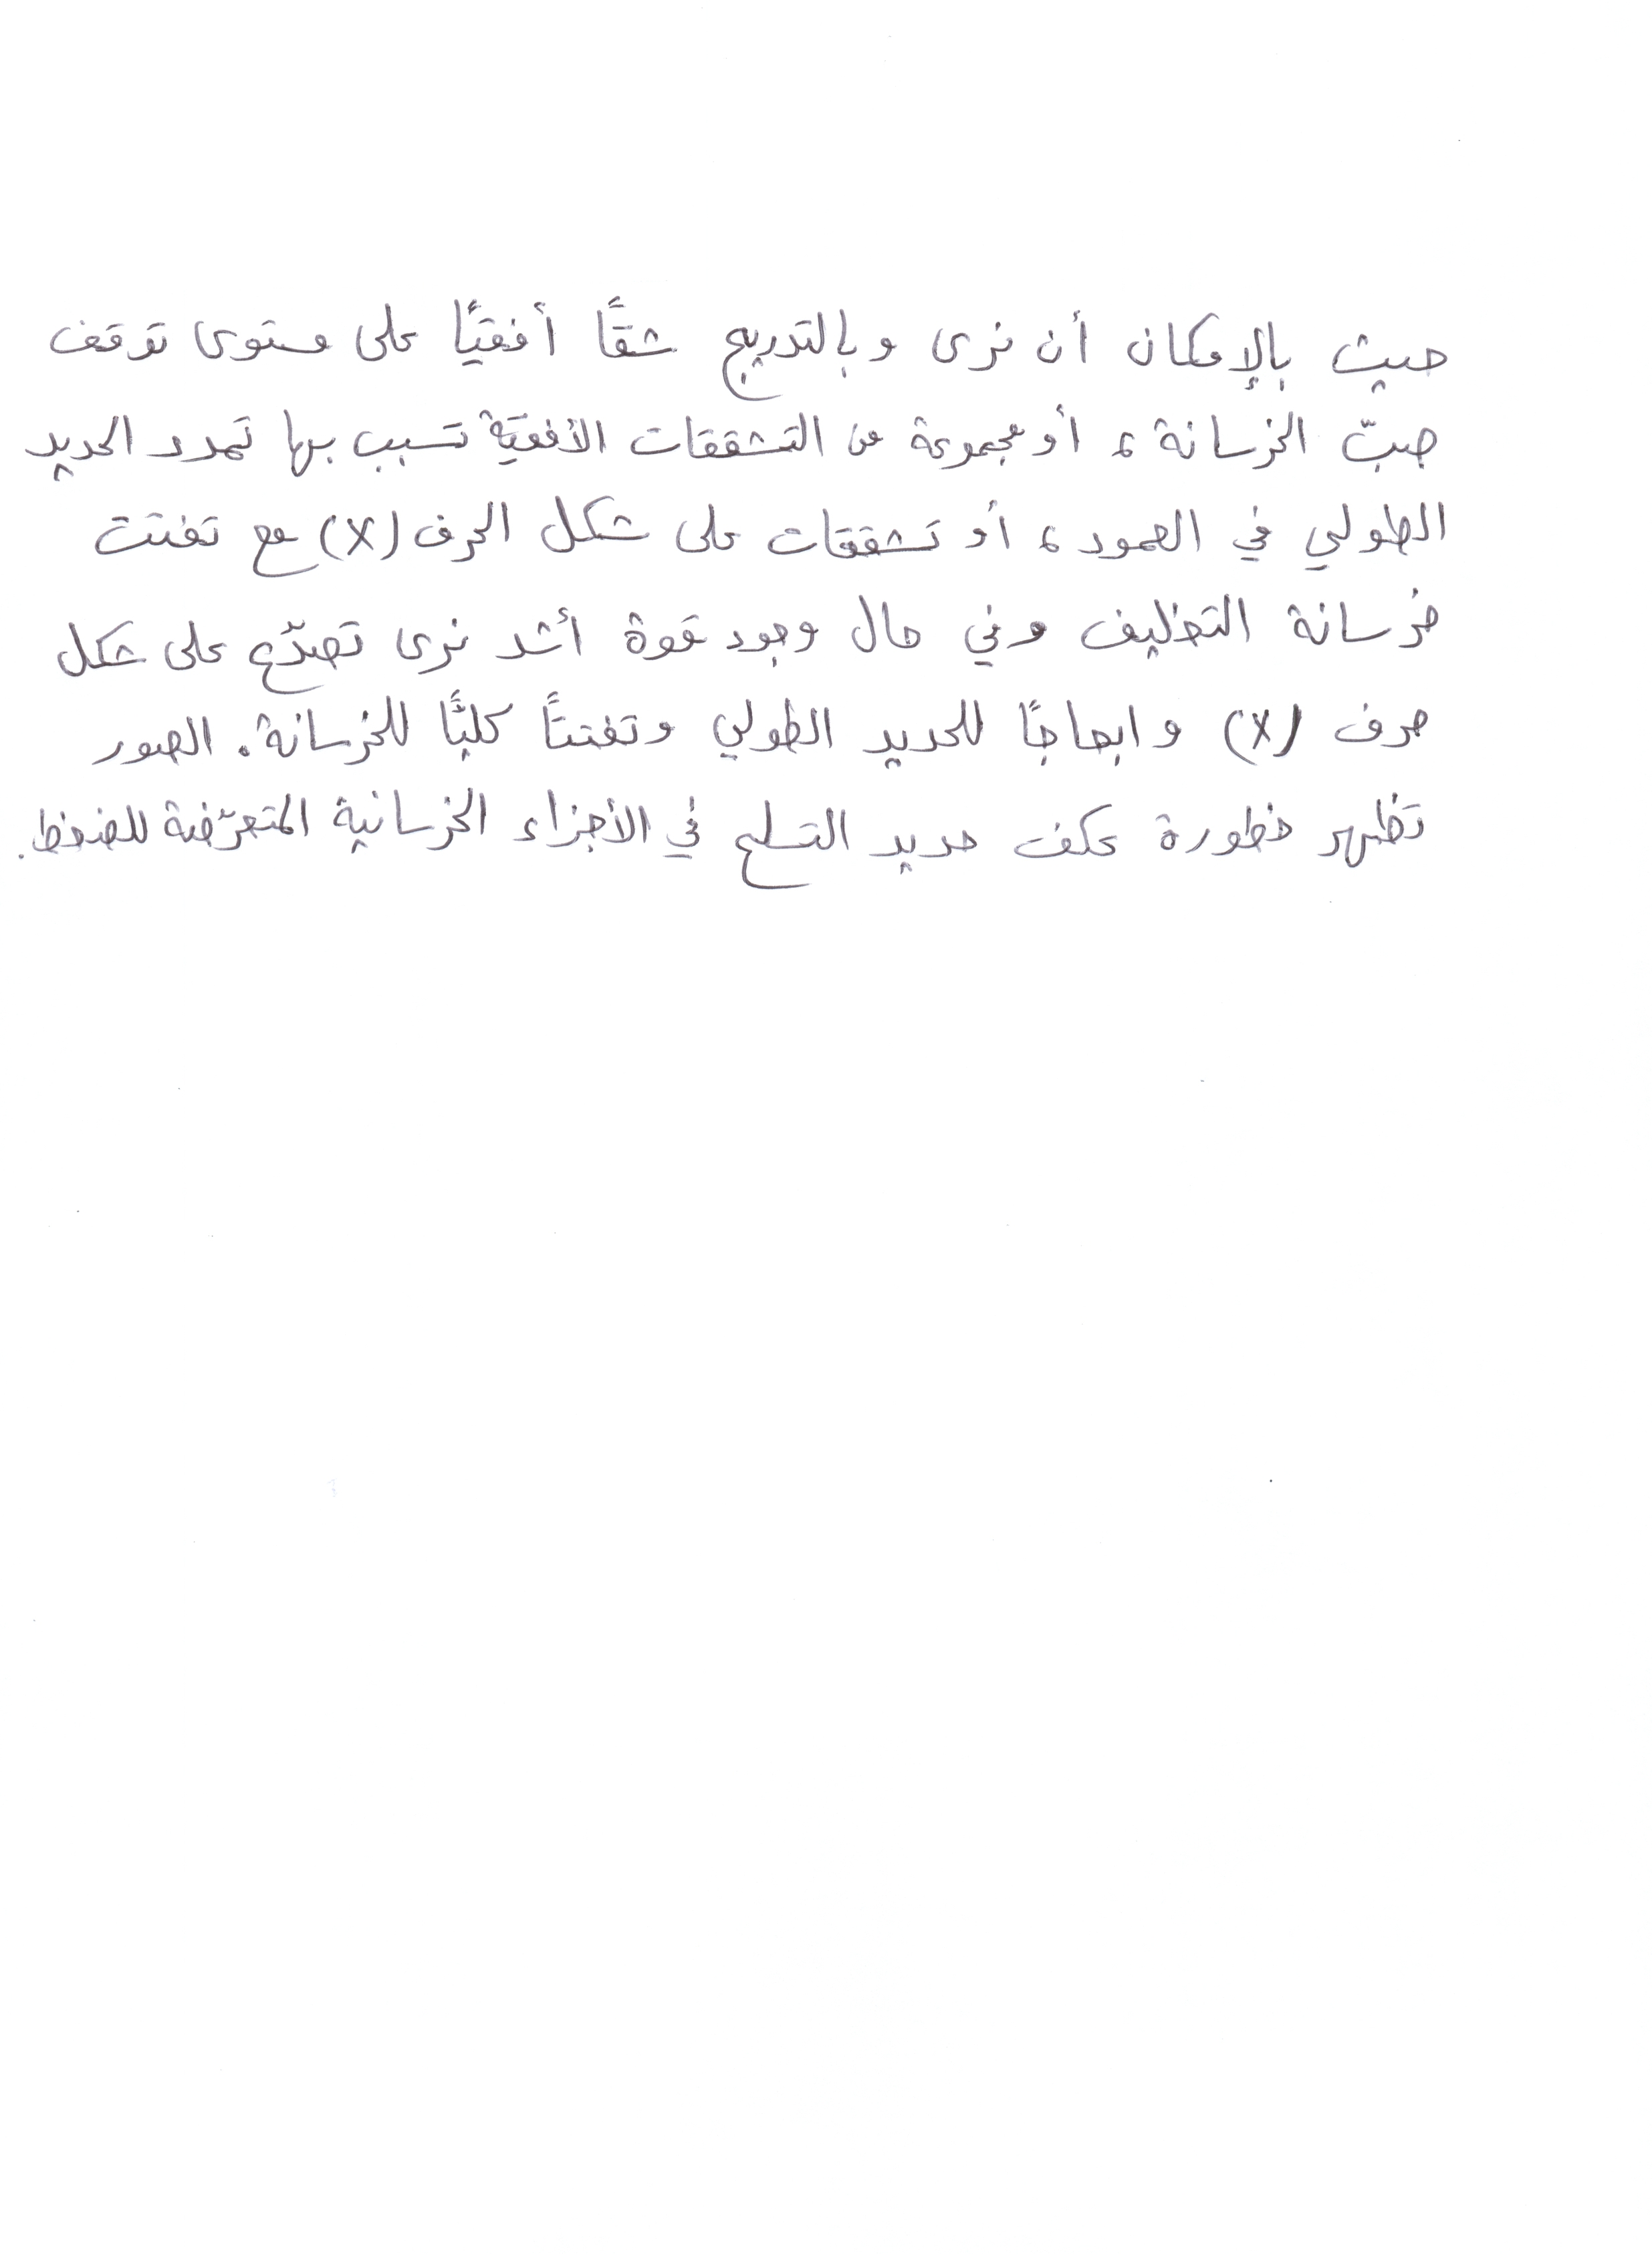 حيث بالإمكان أن نرى وبالتدريج شقًّا أفقيًّا على مستوى توقف
صبّ الخرسانة، أو مجموعة من التشققات الأفقيّة تسبب بها تمدد الحديد
الطولي في العمود، أو تشققات على شكل الحرف (X) مع تفتت
خرسانة التغليف وفي حال وجود قوة أشد نرى تصدّع على شكل
حرف (X) وابعاجًا للحديد الطولي وتفتتًا كليًّا للخرسانة. الصور
تظهر خطورة عكف حديد التسلح في الأجزاء الخرسانية المتعرّضة للضغط.